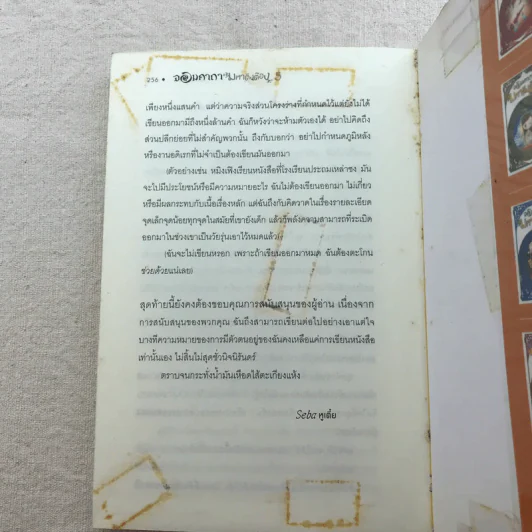 256 • จอมคาถา
เพียงหนึ่งแสนคำ แต่ว่าความจริงส่วนโครงร่างที่กำหนดไว้แต่ยังไม่ได้
เขียนออกมามีถึงหนึ่งล้านคำ ฉันก็หวังว่าจะห้ามตัวเองได้ อย่าไปคิดถึง
ส่วนปลีกย่อยที่ไม่สำคัญพวกนั้น ถึงกับบอกว่า อย่าไปกำหนดภูมิหลัง
หรืองานอดิเรกที่ไม่จำเป็นต้องเขียนมันออกมา
(ตัวอย่างเช่น หมิงเฟิงเรียนหนังสือที่โรงเรียนประถมเหล่าซง มัน
จะไปมีประโยชน์หรือมีความหมายอะไร ฉันไม่ต้องเขียนออกมา ไม่เกี่ยว
หรือมีผลกระทบกับเนื้อเรื่องหลัก แต่ฉันถึงกับคิดวาดในเรื่องรายละเอียด
จุดเล็กจุดน้อยทุกจุดในสมัยที่เขายังเด็ก แล้วก็พลังความสามารถที่ระเบิด
ออกมาในช่วงเขาเป็นวัยรุ่นเอาไว้หมดแล้ว)
(ฉันจะไม่เขียนหรอก เพราะถ้าเขียนออกมาหมด ฉันต้องตะโกน
ช่วยด้วยแน่เลย)
สุดท้ายนี้ยังคงต้องขอบคุณการสนับสนุนของผู้อ่าน เนื่องจาก
การสนับสนุนของพวกคุณ ฉันถึงสามารถเขียนต่อไปอย่างเอาแต่ใจ
บางทีความหมายของการมีตัวตนอยู่ของฉันคงเหลือแค่การเขียนหนังสือ
เท่านั้นเอง ไม่สิ้นไม่สุดชั่วนิจนิรันดร์
ตราบจนกระทั่งน้ำมันเหือดไส้ตะเกียงแห้ง
Seba หูเตี๋ย